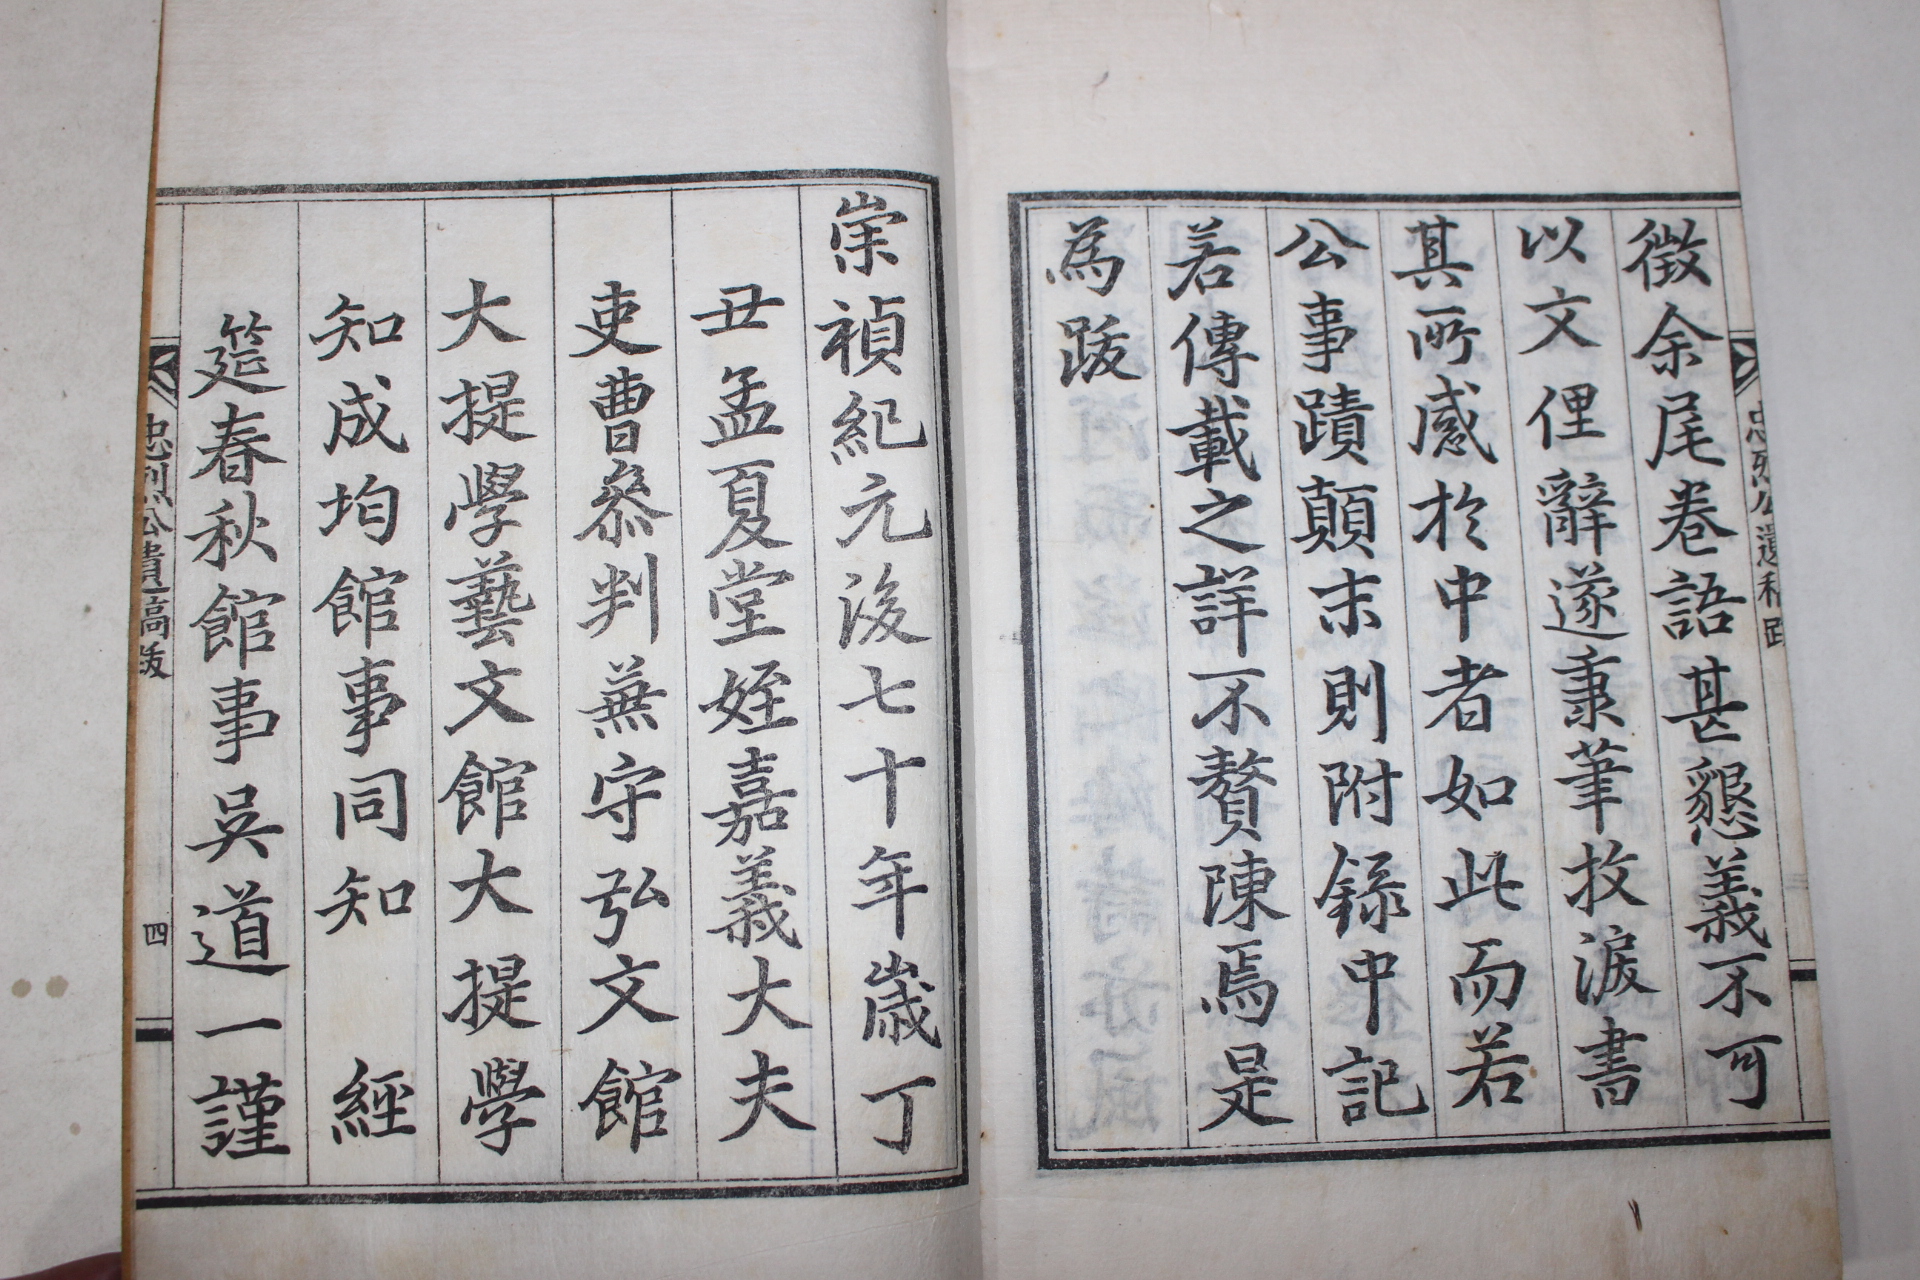 徵余尾卷語甚懇義不可
以文俚辭遂秉筆抆淚書
其所感於中者如此而若
公事蹟顛末則附錄中記
若傳載之詳不贅陳焉是
為跋
崇禎紀元後七十年歲丁
丑孟夏堂姪嘉義大夫
吏曹叅判兼守弘文館
大提學藝文館大提學
知成均館事同知 經
筵春秋館事吳道一謹
忠烈公遺稿跋
忠烈公遺稿跋 四